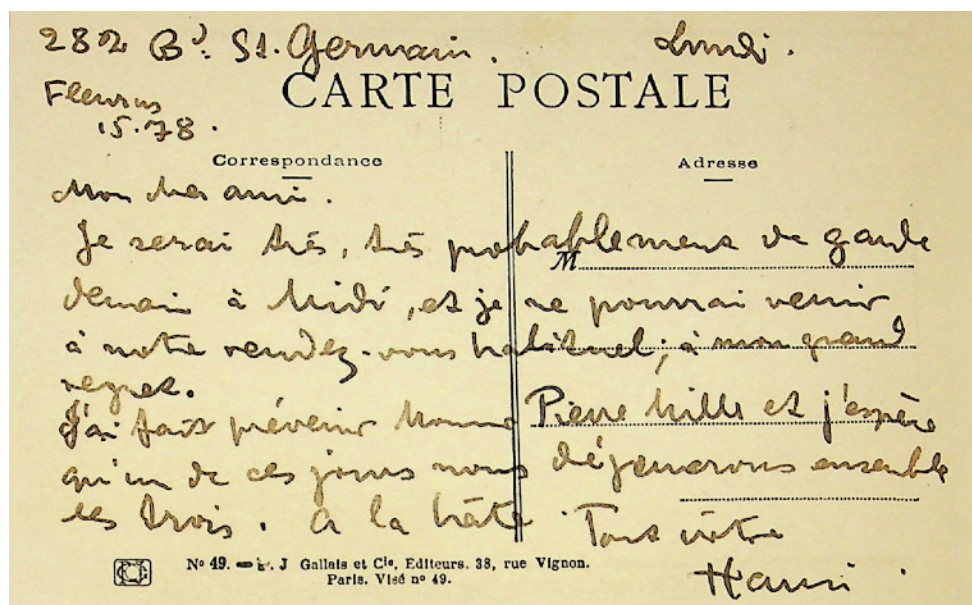 282 Bd. St. Germain. Lundi.
Fleurus
15.78.
CARTE POSTALE
Correspondance
Adresse
Mon cher ami.
Je serai très, très probablement de garde
M
demain à Midi, et je ne pourrai venir
à notre rendez-vous habituel; à mon grand
regret.
J'ai fait prévenir Pierre Mille et j'espère
qu'un de ces jours nous déjeunerons ensemble
les trois. A la hâte. Tout vôtre
N° 49. J Gallais et Cie, Editeurs. 38, rue Vignon.
Paris. Visé n° 49.